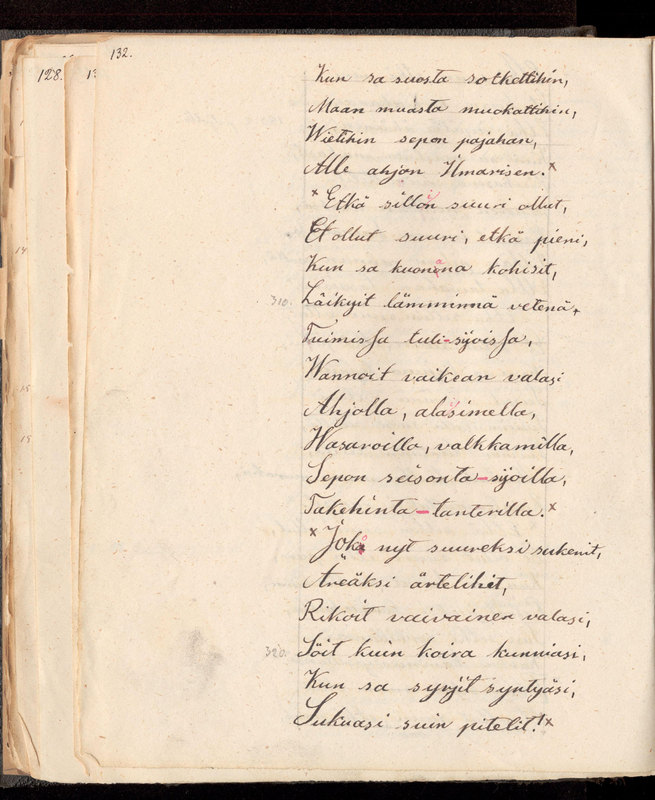 132.
128.
Kun sa suosta sotkettihin,
Maan muasta muokattihin,
Wietihin sepon pajahan,
Alle ahjon Ilmarisen.x
x Etkä sillon suuri ollut,
Et ollut suuri, etkä pieni,
Kun sa kuonana kohisit,
310. Läikyit lämminnä vetenä,
Tuimissa tuli-syöissä,
Wannoit vaikean valasi
Ahjolla, alasimella,
Wasaroilla, valkkamilla,
Sepon seisonta-syoilla,
Takehinta-tanterilla.x
x Joko nyt suureksi sukenit,
Äreäksi ärtelihit,
Rikoit vaivainen valasi,
320. Söit kuin koira kunniasi,
Kun sa syrjit syntyäsi,
Sukuasi suin pitelit!x